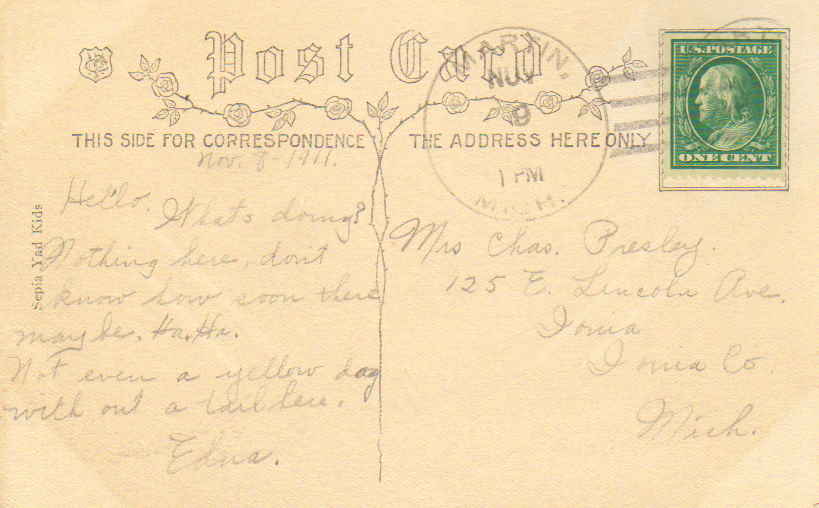 Post Card
THIS SIDE FOR CORRESPONDENCE
THE ADDRESS HERE ONLY
U.S. POSTAGE
ONE CENT
MARTIN,
NOV
9
1 PM
MICH.
Nov. 8-1911.
Hello. Whats doing?
Nothing here, don't
know how soon there
maybe. Ha. Ha.
Not even a yellow dog
with out a tail here.
Edna.
Mrs Chas. Presley.
125 E. Lincoln Ave.
Ionia
Ionia Co.
Mich.
Sepia Yad Kids